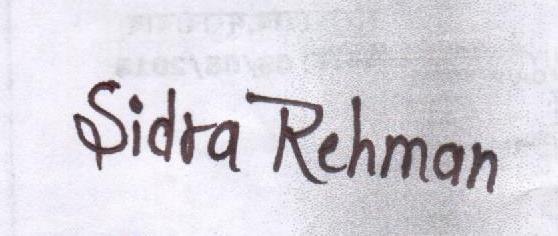 Sidra Rehman